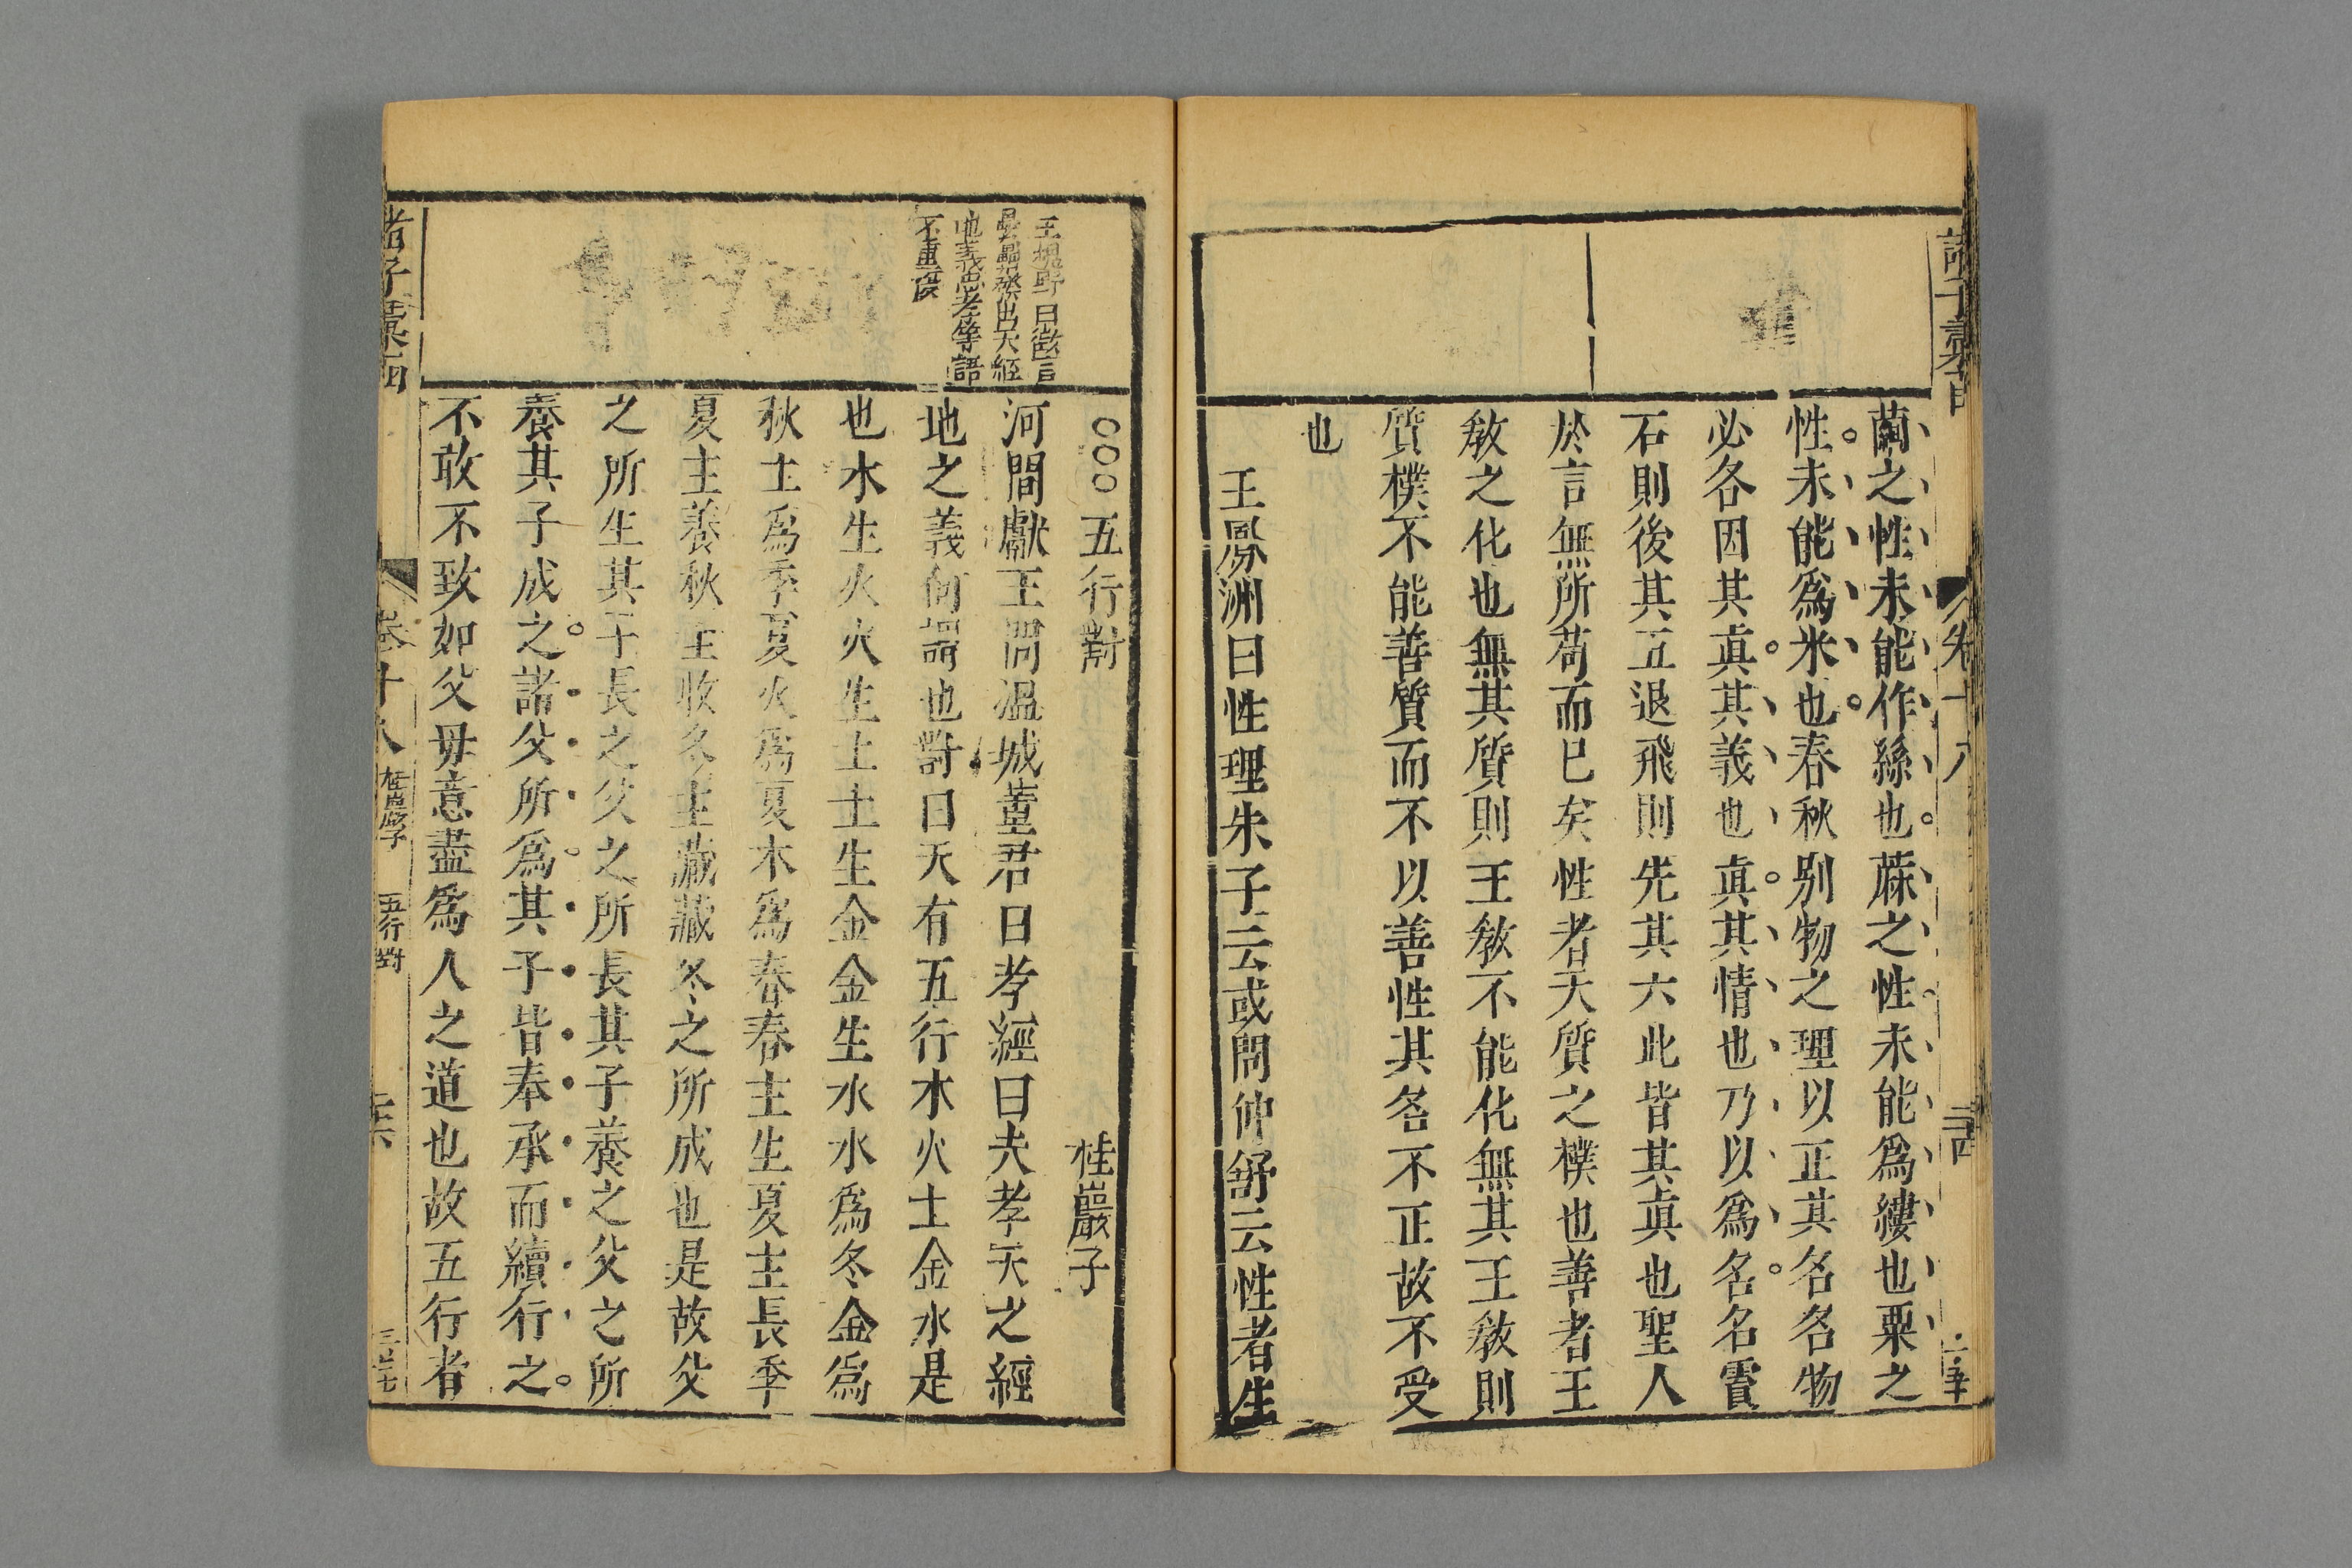 諸子彙函
卷十八
蘭之性未能作絲也蔴之性未能爲縷也粟之
性未能爲米也春秋别物之理以正其名名物
必各因其眞其義也眞其情也乃以爲名名霣
石則後其五退飛則先其六此皆其眞也聖人
於言無所苟而已矣性者天質之樸也善者王
敎之化也無其質則王敎不能化無其王敎則
質樸不能善質而不以善性其名不正故不受
也
王鳳洲曰性理朱子云或問仲舒云性者生
王槐野曰微言
地義忠孝等語
不重復
○○○五行對
桂巖子
河間獻王問溫城董君曰孝經曰夫孝天之經
地之義何謂也對曰天有五行木火土金水是
也水生火火生土土生金金生水水爲冬金爲
秋土爲季夏火爲夏木爲春春主生夏主長季
夏主養秋主收冬主藏藏冬之所成也是故父
之所生其子長之父之所長其子養之父之所
養其子成之諸父所爲其子皆奉承而續行之
不敢不致如父毋意盡爲人之道也故五行者
諸子彙函
卷十八
桂巖子
五行對